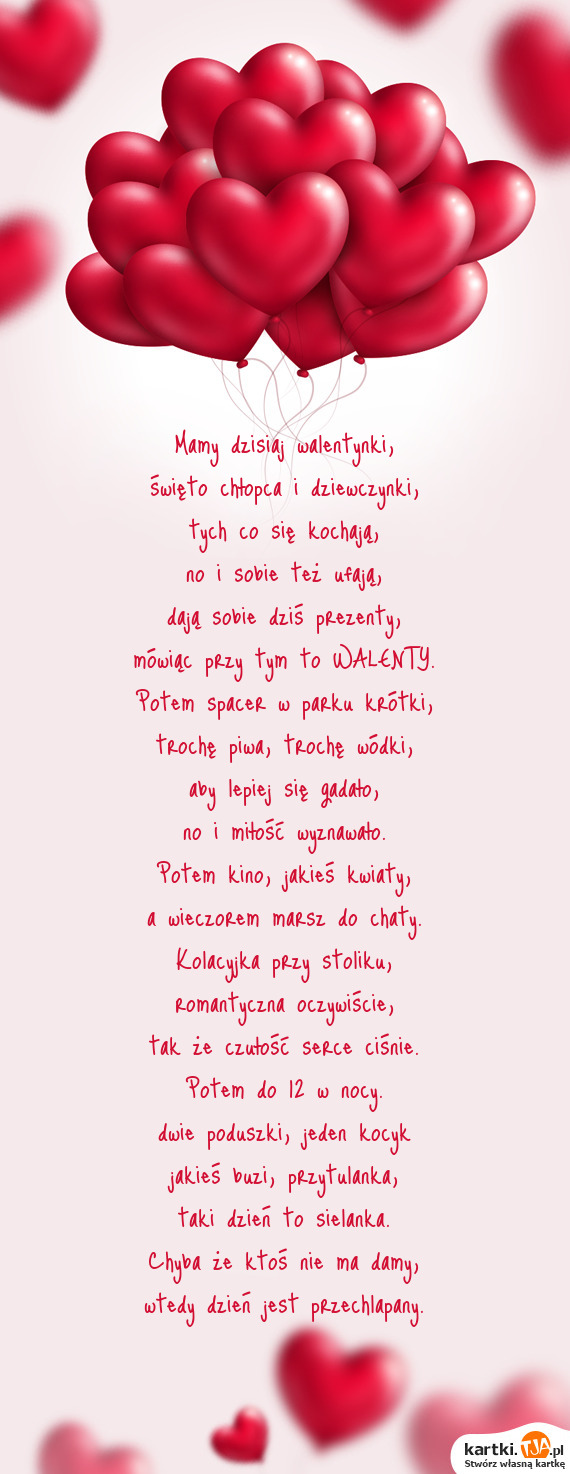 Mamy dzisiaj walentynki,
święto chłopca i dziewczynki,
tych co się kochają,
no i sobie też ufają,
dają sobie dziś prezenty,
mówiąc przy tym to WALENTY.
Potem spacer w parku krótki,
trochę piwa, trochę wódki,
aby lepiej się gadało,
no i miłość wyznawało.
Potem kino, jakieś kwiaty,
a wieczorem marsz do chaty.
Kolacyjka przy stoliku,
romantyczna oczywiście,
tak że czułość serce ciśnie.
Potem do 12 w nocy.
dwie poduszki, jeden kocyk
jakieś buzi, przytulanka,
taki dzień to sielanka.
Chyba że ktoś nie ma damy,
wtedy dzień jest przechlapany.
kartki.TJA.pl
Stwórz własną kartkę